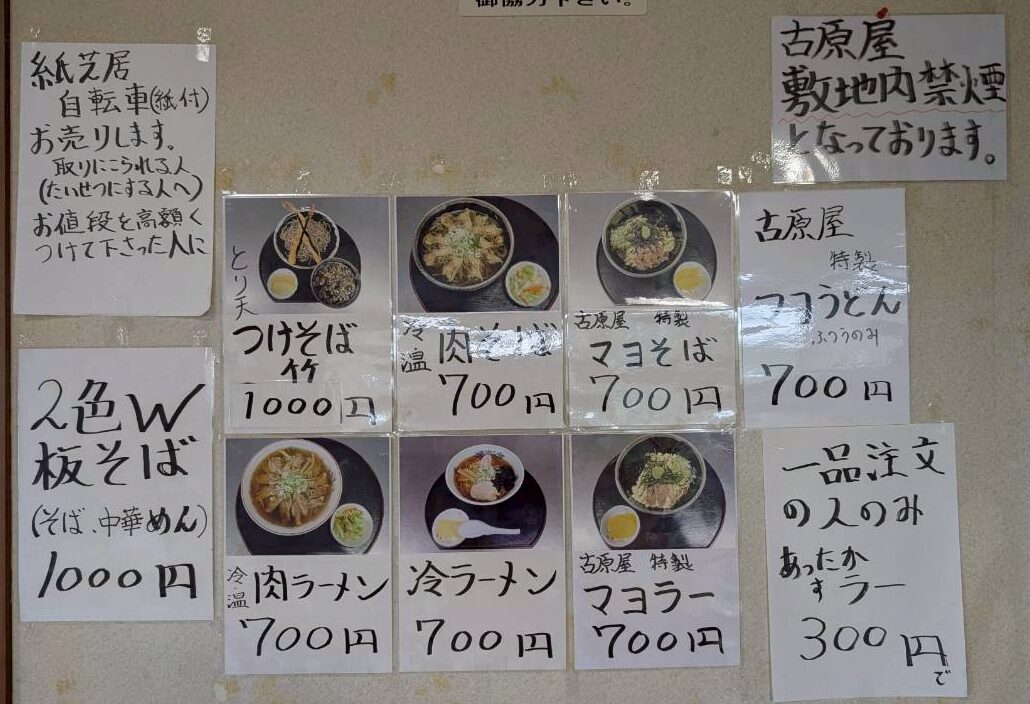 御協力下さい。
紙芝居
自転車(紙付)
お売りします。
取りにこられる人
(たいせつにする人へ)
お値段を高額く
つけて下さった人に
古原屋
敷地内禁煙
となっております。
とり天
つけそば
竹
1000円
冷温
肉そば
700円
古原屋 特製
マヨそば
700円
古原屋
特製
マヨうどん
ふつうのみ
700円
2色W
板そば
(そば、中華めん)
1000円
冷・温
肉ラーメン
700円
冷ラーメン
700円
古原屋 特製
マヨラー
700円
一品注文
の人のみ
あったか
すラー
300円で